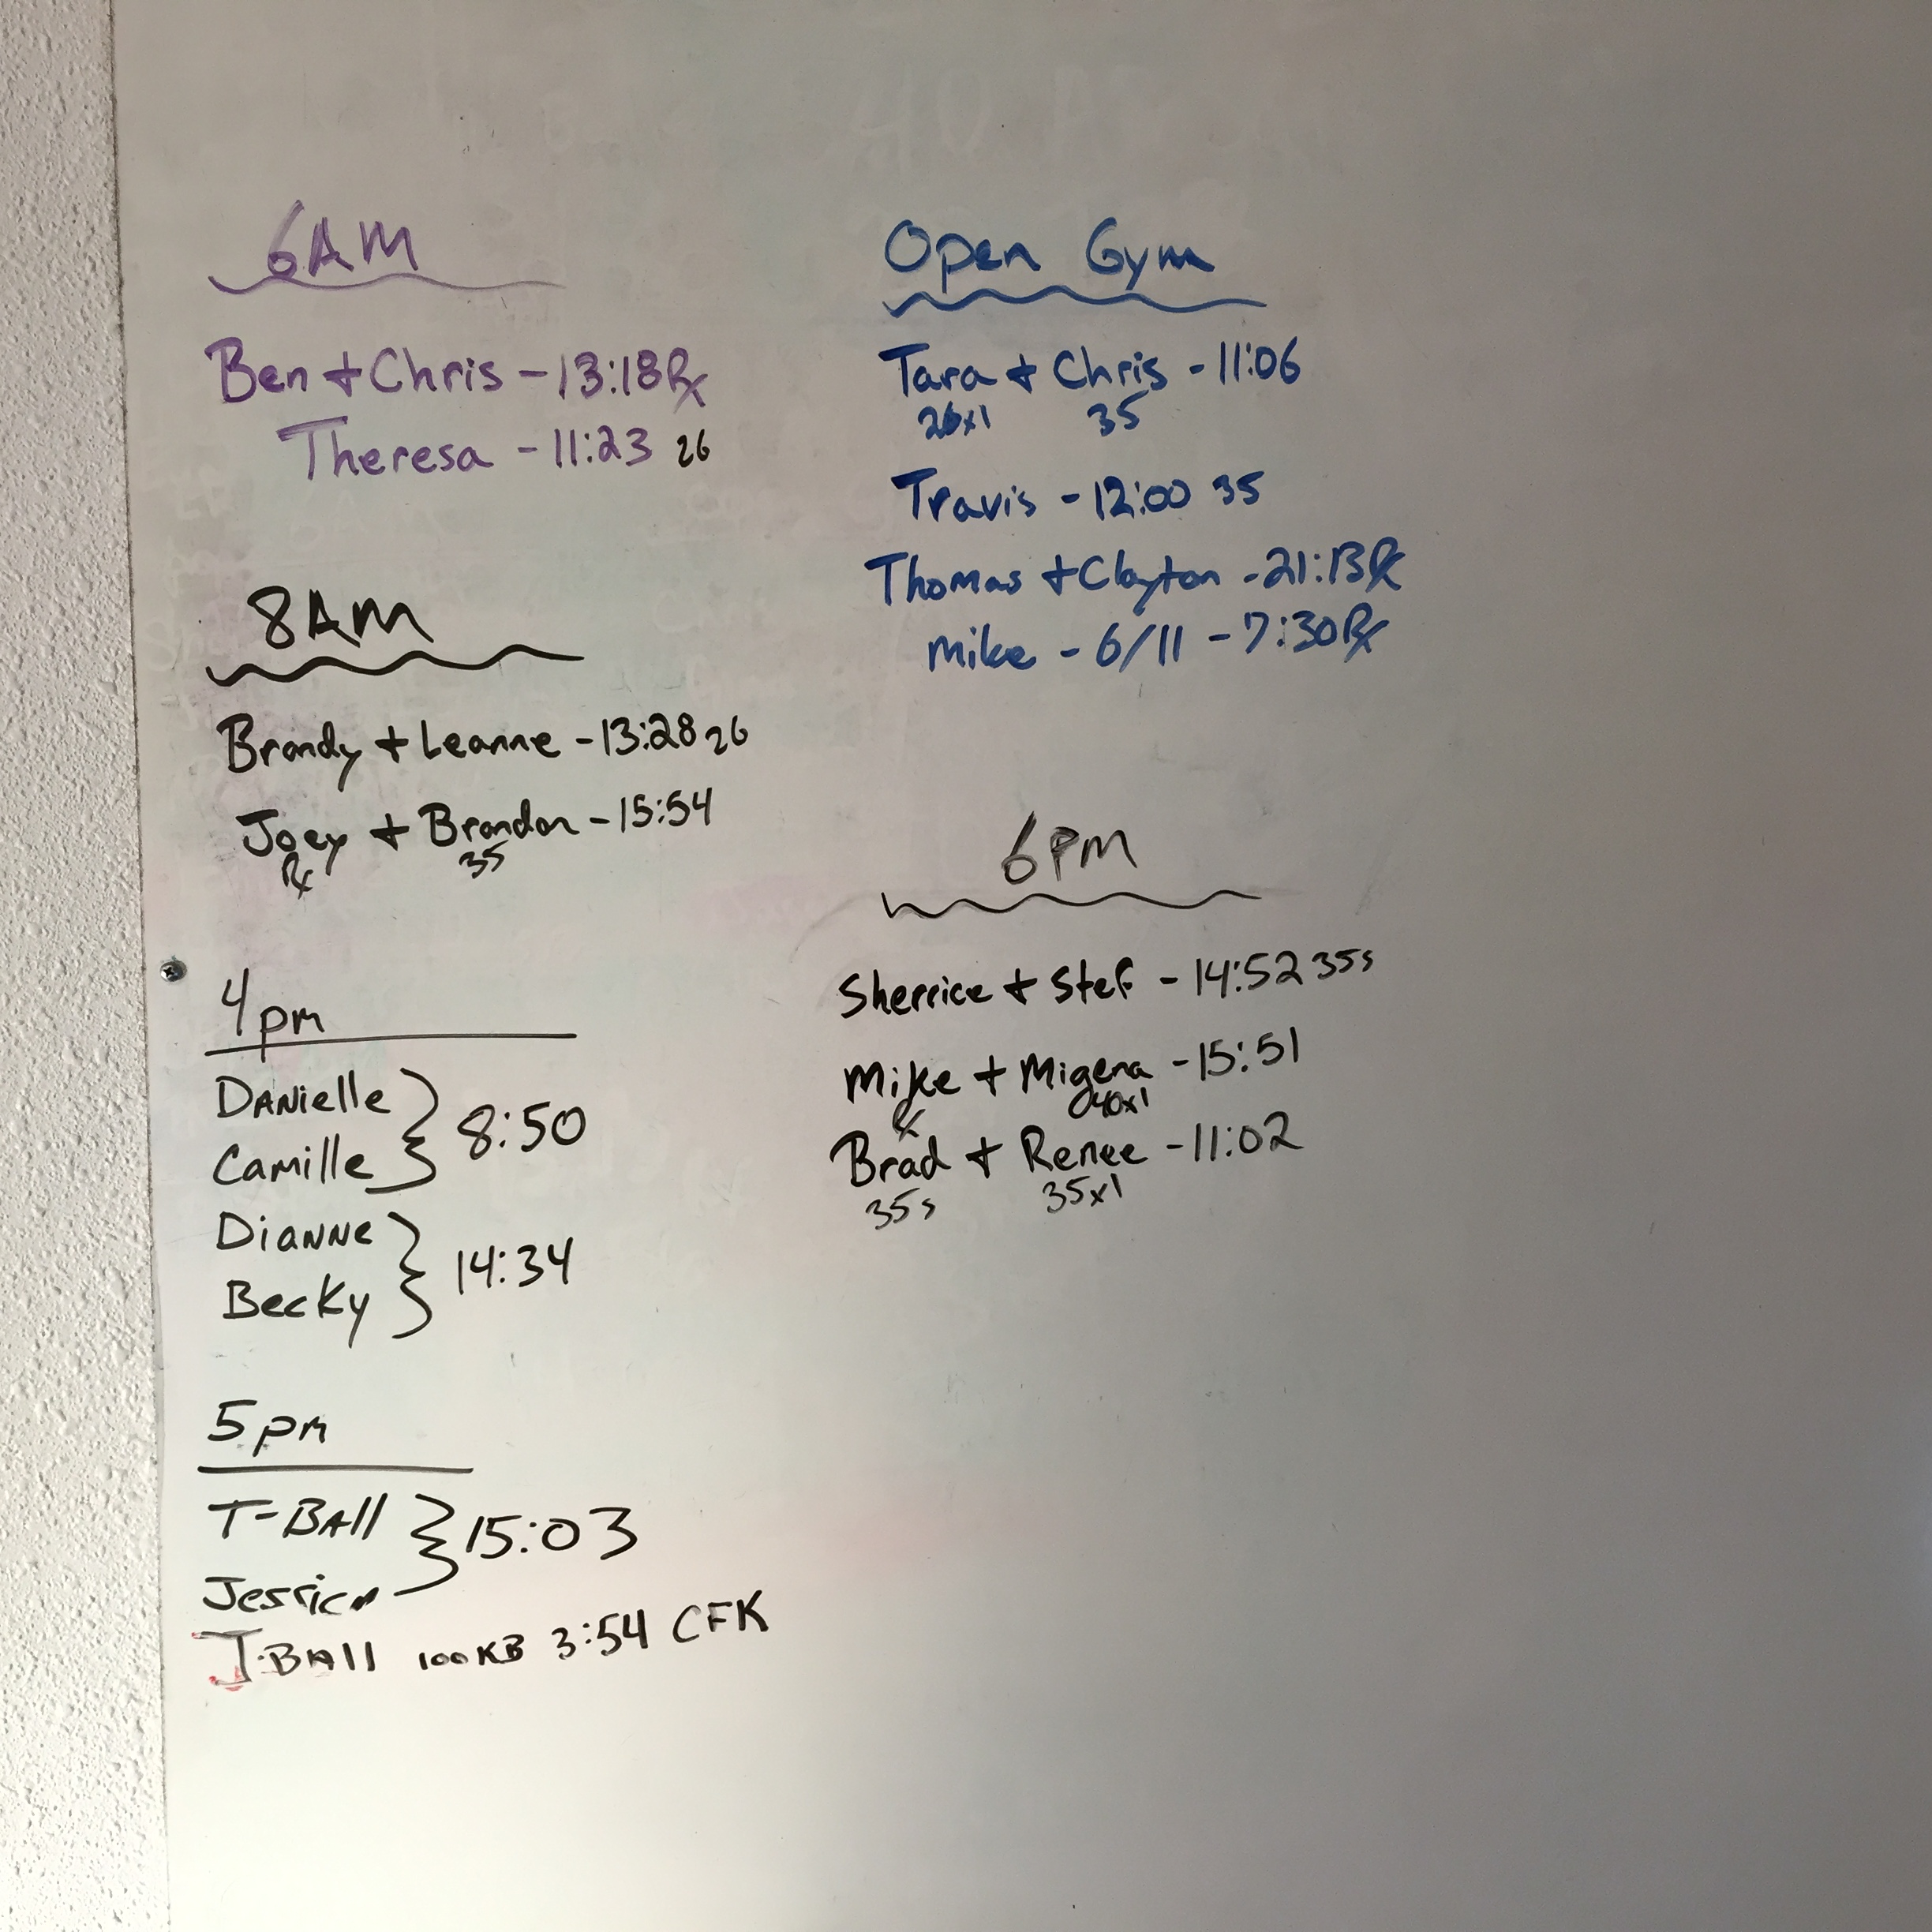 6AM
Ben + Chris - 13:18 Rx
Theresa - 11:23 26
8AM
Brandy + Leanne - 13:28 26
Joey + Brandon - 15:54
Rx 35
4pm
Danielle
Camille } 8:50
Dianne
Becky } 14:34
5pm
T-Ball
Jessica } 15:03
J-Ball 100KB 3:54 CFK
Open Gym
Tara + Chris - 11:06
26x1 35
Travis - 12:00 35
Thomas + Clayton - 21:13 Rx
Mike - 6/11 - 7:30 Rx
6PM
Sherrice + Stef - 14:52 35s
Mike + Migena - 15:51
Rx 40x1
Brad + Renee - 11:02
35s 35x1